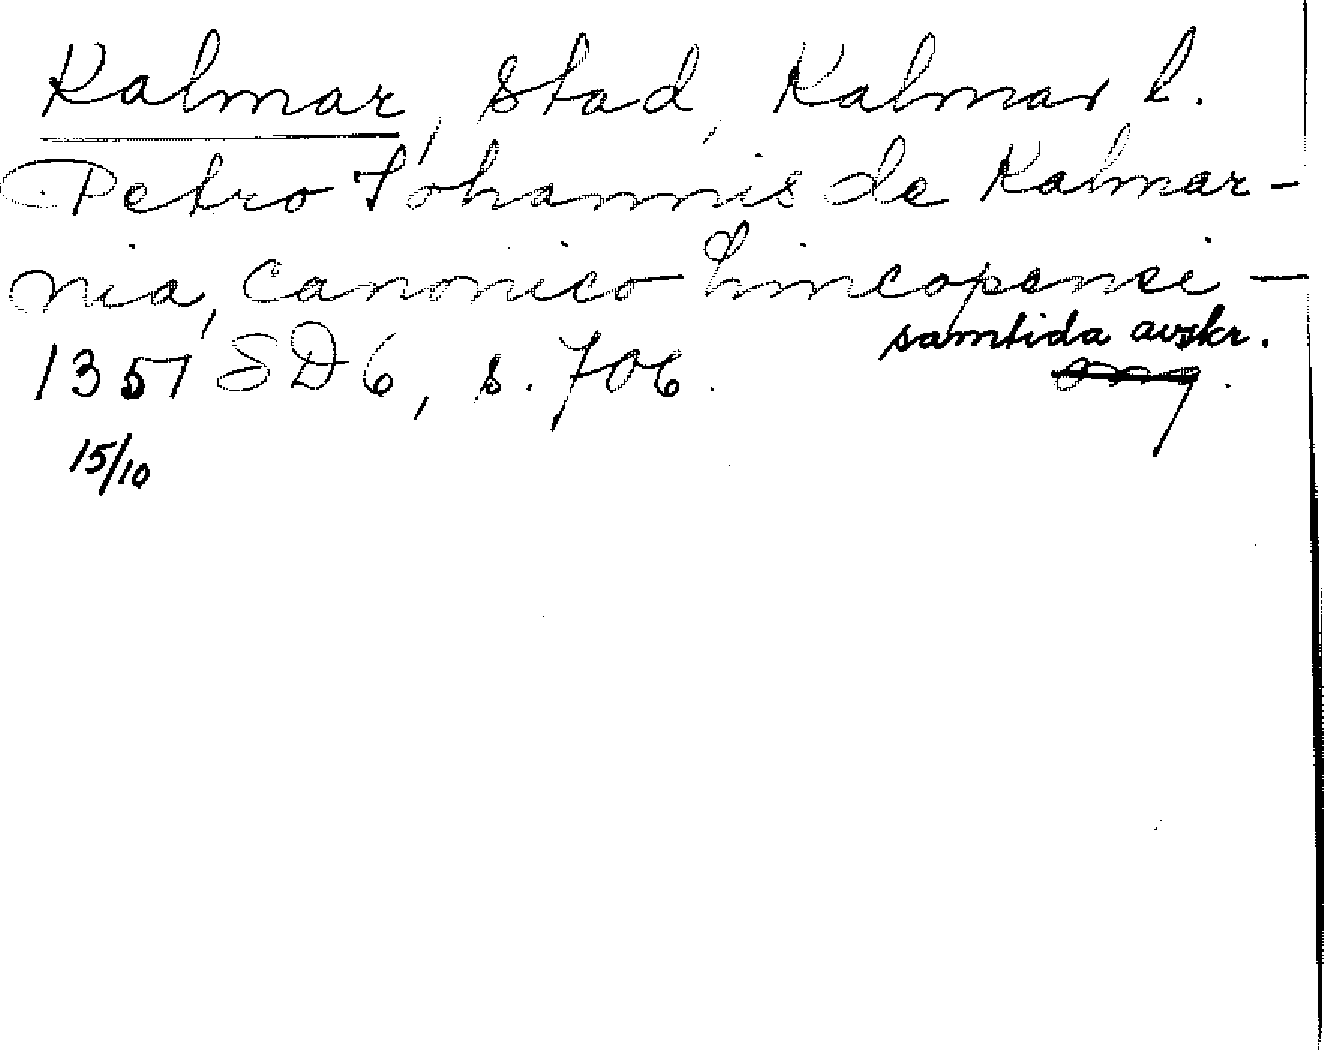 Kalmar, stad, Kalmar l.
Petro Johannis de Kalmar-
nia, canonico Lincopensi –
samtida avskr.
1357 SD 6, s. 706.
15/10